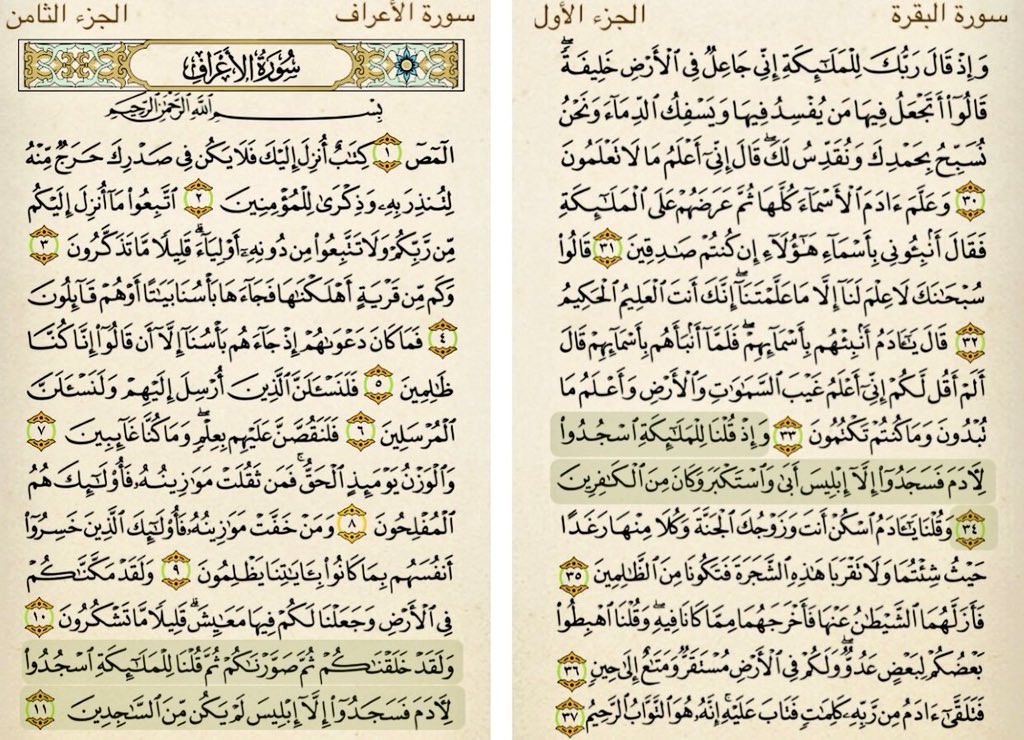 سورة البقرة
الجزء الأول
وَإِذْ قَالَ رَبُّكَ لِلْمَلَـٰٓئِكَةِ إِنِّى جَاعِلٌ فِى ٱلْأَرْضِ خَلِيفَةً ۖ
قَالُوٓا۟ أَتَجْعَلُ فِيهَا مَن يُفْسِدُ فِيهَا وَيَسْفِكُ ٱلدِّمَآءَ وَنَحْنُ
نُسَبِّحُ بِحَمْدِكَ وَنُقَدِّسُ لَكَ ۖ قَالَ إِنِّىٓ أَعْلَمُ مَا لَا تَعْلَمُونَ
٣٠ وَعَلَّمَ ءَادَمَ ٱلْأَسْمَآءَ كُلَّهَا ثُمَّ عَرَضَهُمْ عَلَى ٱلْمَلَـٰٓئِكَةِ
فَقَالَ أَنۢبِـُٔونِى بِأَسْمَآءِ هَـٰٓؤُلَآءِ إِن كُنتُمْ صَـٰدِقِينَ ٣١ قَالُوا۟
سُبْحَـٰنَكَ لَا عِلْمَ لَنَآ إِلَّا مَا عَلَّمْتَنَآ ۖ إِنَّكَ أَنتَ ٱلْعَلِيمُ ٱلْحَكِيمُ
٣٢ قَالَ يَـٰٓـَٔادَمُ أَنۢبِئْهُم بِأَسْمَآئِهِمْ ۖ فَلَمَّآ أَنۢبَأَهُم بِأَسْمَآئِهِمْ قَالَ
أَلَمْ أَقُل لَّكُمْ إِنِّىٓ أَعْلَمُ غَيْبَ ٱلسَّمَـٰوَٰتِ وَٱلْأَرْضِ وَأَعْلَمُ مَا
تُبْدُونَ وَمَا كُنتُمْ تَكْتُمُونَ ٣٣ وَإِذْ قُلْنَا لِلْمَلَـٰٓئِكَةِ ٱسْجُدُوا۟
لِـَٔادَمَ فَسَجَدُوٓا۟ إِلَّآ إِبْلِيسَ أَبَىٰ وَٱسْتَكْبَرَ وَكَانَ مِنَ ٱلْكَـٰفِرِينَ
٣٤ وَقُلْنَا يَـٰٓـَٔادَمُ ٱسْكُنْ أَنتَ وَزَوْجُكَ ٱلْجَنَّةَ وَكُلَا مِنْهَا رَغَدًا
حَيْثُ شِئْتُمَا وَلَا تَقْرَبَا هَـٰذِهِ ٱلشَّجَرَةَ فَتَكُونَا مِنَ ٱلظَّـٰلِمِينَ ٣٥
فَأَزَلَّهُمَا ٱلشَّيْطَـٰنُ عَنْهَا فَأَخْرَجَهُمَا مِمَّا كَانَا فِيهِ ۖ وَقُلْنَا ٱهْبِطُوا۟
بَعْضُكُمْ لِبَعْضٍ عَدُوٌّ ۖ وَلَكُمْ فِى ٱلْأَرْضِ مُسْتَقَرٌّ وَمَتَـٰعٌ إِلَىٰ حِينٍ ٣٦
فَتَلَقَّىٰٓ ءَادَمُ مِن رَّبِّهِۦ كَلِمَـٰتٍ فَتَابَ عَلَيْهِ ۚ إِنَّهُۥ هُوَ ٱلتَّوَّابُ ٱلرَّحِيمُ ٣٧
سورة الأعراف
الجزء الثامن
سُورَةُ الأَعْرَافِ
بِسْمِ ٱللَّهِ ٱلرَّحْمَـٰنِ ٱلرَّحِيمِ
الٓمٓصٓ ١ كِتَـٰبٌ أُنزِلَ إِلَيْكَ فَلَا يَكُن فِى صَدْرِكَ حَرَجٌ مِّنْهُ
لِتُنذِرَ بِهِۦ وَذِكْرَىٰ لِلْمُؤْمِنِينَ ٢ ٱتَّبِعُوا۟ مَآ أُنزِلَ إِلَيْكُم
مِّن رَّبِّكُمْ وَلَا تَتَّبِعُوا۟ مِن دُونِهِۦٓ أَوْلِيَآءَ ۗ قَلِيلًا مَّا تَذَكَّرُونَ ٣
وَكَم مِّن قَرْيَةٍ أَهْلَكْنَـٰهَا فَجَآءَهَا بَأْسُنَا بَيَـٰتًا أَوْ هُمْ قَآئِلُونَ
٤ فَمَا كَانَ دَعْوَىٰهُمْ إِذْ جَآءَهُم بَأْسُنَآ إِلَّآ أَن قَالُوٓا۟ إِنَّا كُنَّا
ظَـٰلِمِينَ ٥ فَلَنَسْـَٔلَنَّ ٱلَّذِينَ أُرْسِلَ إِلَيْهِمْ وَلَنَسْـَٔلَنَّ
ٱلْمُرْسَلِينَ ٦ فَلَنَقُصَّنَّ عَلَيْهِم بِعِلْمٍ ۖ وَمَا كُنَّا غَآئِبِينَ ٧
وَٱلْوَزْنُ يَوْمَئِذٍ ٱلْحَقُّ ۚ فَمَن ثَقُلَتْ مَوَٰزِينُهُۥ فَأُو۟لَـٰٓئِكَ هُمُ
ٱلْمُفْلِحُونَ ٨ وَمَنْ خَفَّتْ مَوَٰزِينُهُۥ فَأُو۟لَـٰٓئِكَ ٱلَّذِينَ خَسِرُوٓا۟
أَنفُسَهُم بِمَا كَانُوا۟ بِـَٔايَـٰتِنَا يَظْلِمُونَ ٩ وَلَقَدْ مَكَّنَّـٰكُمْ
فِى ٱلْأَرْضِ وَجَعَلْنَا لَكُمْ فِيهَا مَعَـٰيِشَ ۗ قَلِيلًا مَّا تَشْكُرُونَ ١٠
وَلَقَدْ خَلَقْنَـٰكُمْ ثُمَّ صَوَّرْنَـٰكُمْ ثُمَّ قُلْنَا لِلْمَلَـٰٓئِكَةِ ٱسْجُدُوا۟
لِـَٔادَمَ فَسَجَدُوٓا۟ إِلَّآ إِبْلِيسَ لَمْ يَكُن مِّنَ ٱلسَّـٰجِدِينَ ١١